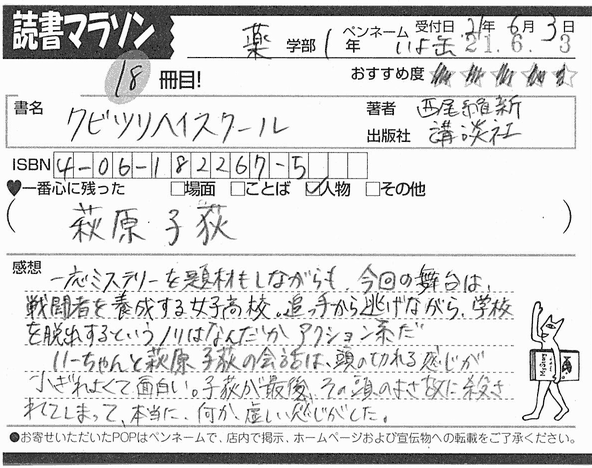 読書マラソン
薬 学部 1 年 ペンネーム いよ缶 受付日 21年 6月 3日
21.6.-3
18 冊目! おすすめ度 ★★★★☆
書名 クビツリハイスクール 著者 西尾維新
出版社 講談社
ISBN 4-06-182267-5
♥一番心に残った □場面 □ことば ☑人物 □その他
( 萩原 子荻 )
感想
一応ミステリーを題材もしながらも、今回の舞台は、
戦闘者を養成する女子高校。追っ手から逃げながら、学校
を脱出するというノリはなんだか アクション系だ
いーちゃんと萩原子荻の会話は、頭の切れる感じが
小ぎれよくて面白い。子荻が最後、その頭のよさ故に殺さ
れてしまって、本当に、何か、虚しい感じがした。
●お寄せいただいたPOPはペンネームで、店内で掲示、ホームページおよび宣伝物への転載をご了承ください。